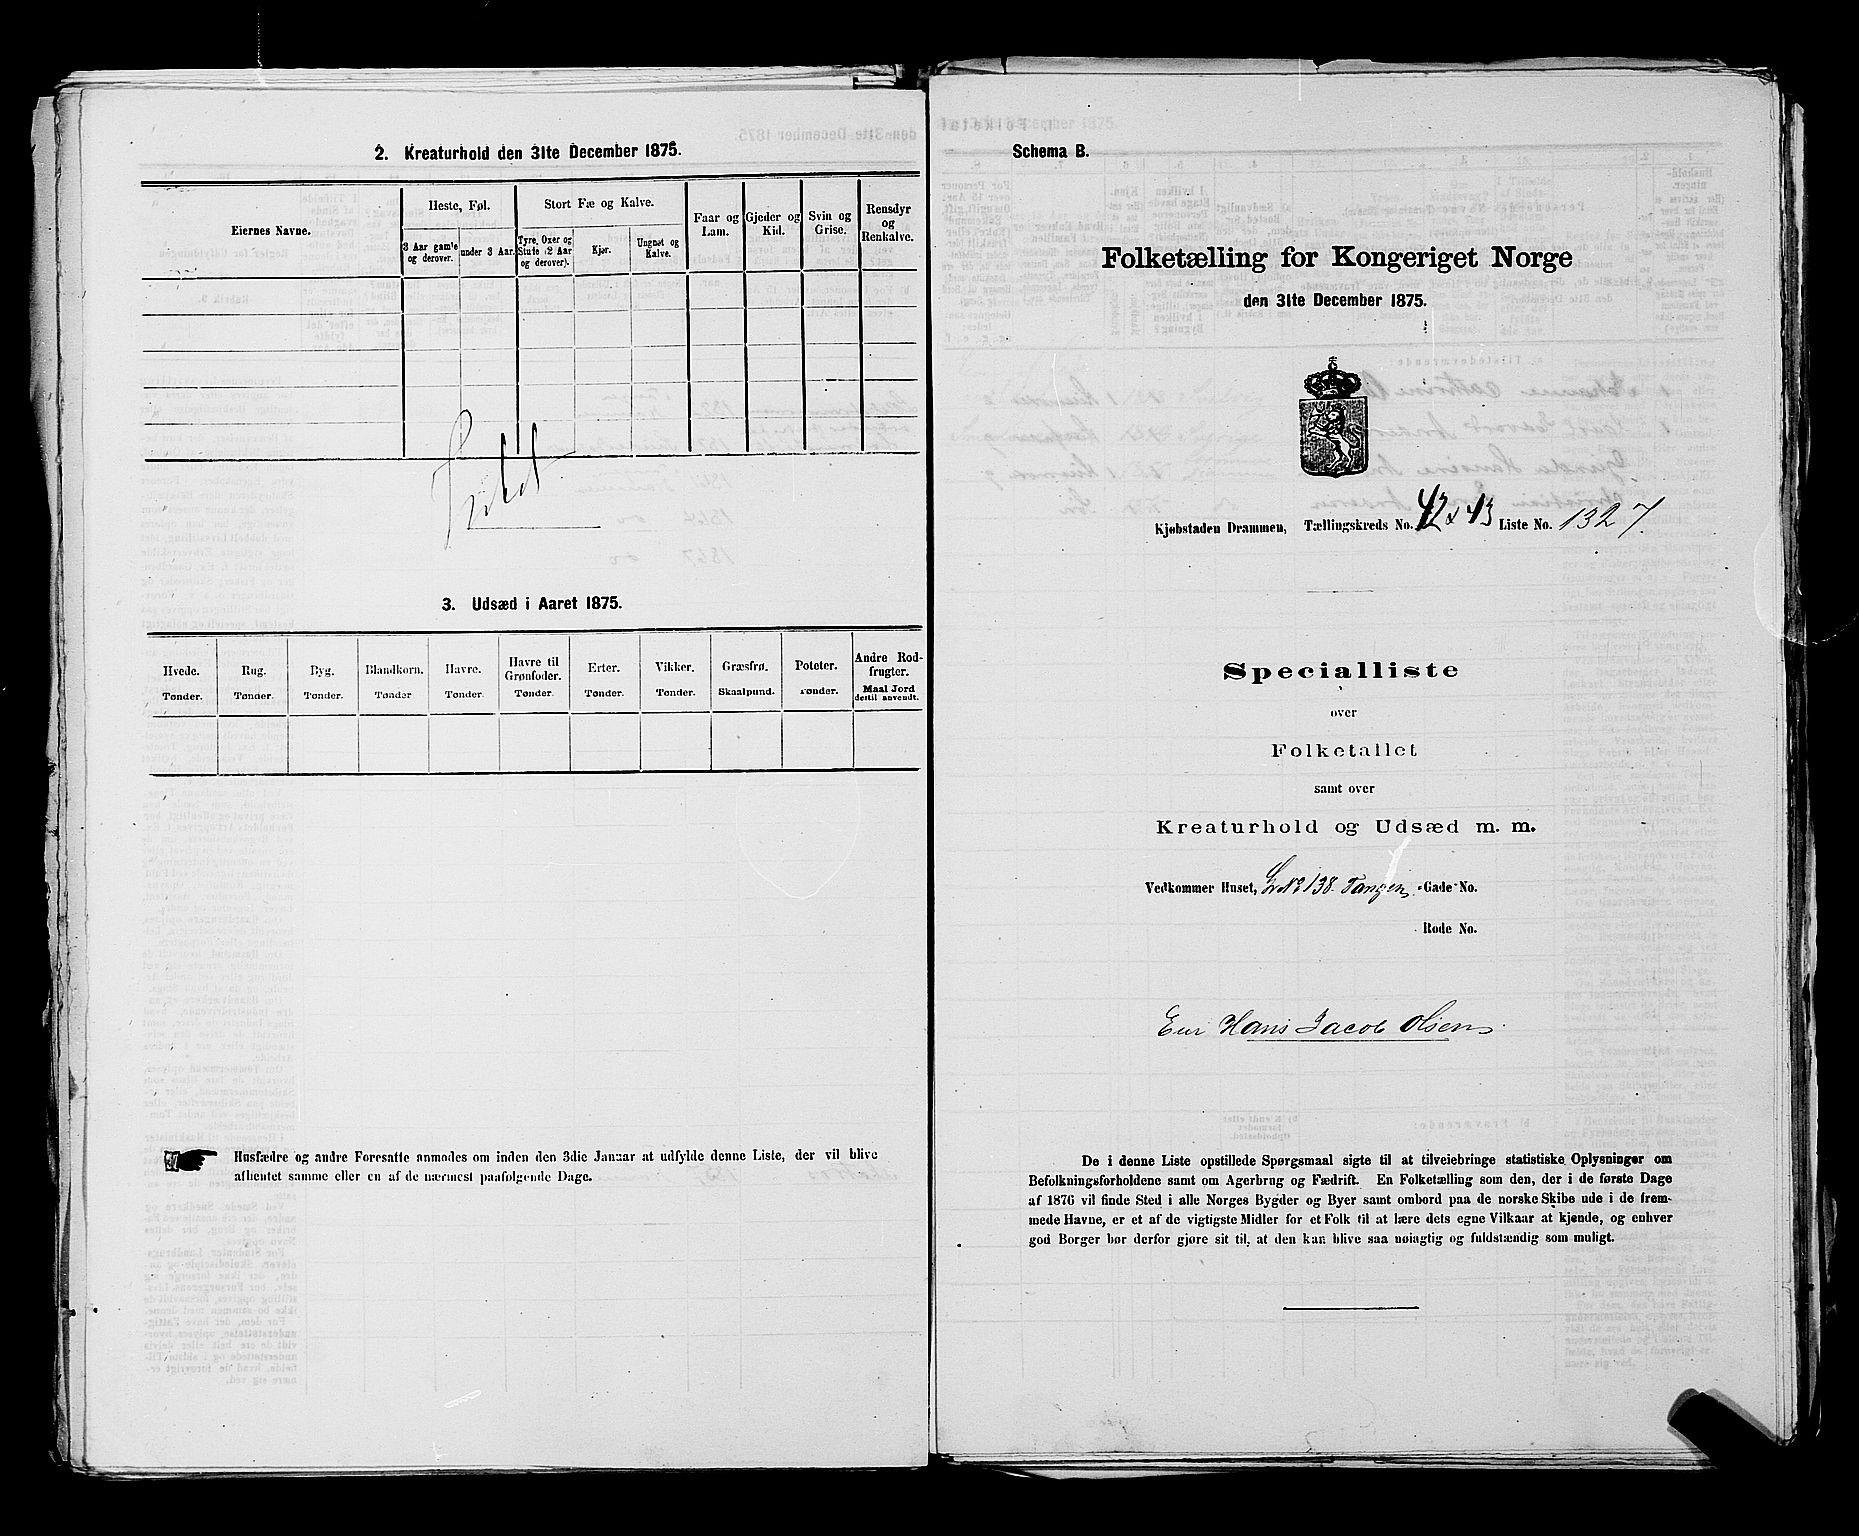 2. Kreaturhold den 31te December 1875.
Eiernes Navne.
Heste, Føl.
Stort Fæ og Kalve.
Faar og Lam.
Gjeder og Kid.
Svin og Grise.
Rensdyr og Renkalve.
3 Aar gamle og derover.
under 3 Aar.
Tyre, Oxer og Stute (2 Aar og derover).
Kjør.
Ungnøt og Kalve.
3. Udsæd i Aaret 1875.
Hvede. Rug. Byg. Blandkorn. Havre. Havre til Grønfoder. Erter. Vikker. Græsfrø. Poteter. Andre Rodfrugter.
Tønder. Tønder. Tønder. Tønder Tønder. Tønder. Tønder. Tønder. Skaalpund. Tønder. Maal Jord dertil anvendt.
Husfædre og andre Foresatte anmodes om inden den 3die Januar at udfylde denne Liste, der vil blive
afhentet samme eller en af de nærmest paafølgende Dage.
Schema B.
Folketælling for Kongeriget Norge
den 31te December 1875.
Kjøbstaden Drammen, Tællingskreds No. 42 & 43 Liste No. 1327.
Specialliste
over
Folketallet
samt over
Kreaturhold og Udsæd m. m.
Vedkommer Huset, LNo 138. Tangen -Gade No.
Rode No.
Eier Hans Jacob Olsen.
De i denne Liste opstillede Spørgsmaal sigte til at tilveiebringe statistiske Oplysninger om
Befolkningsforholdene samt om Agerbrug og Fædrift. En Folketælling som den, der i de første Dage
af 1876 vil finde Sted i alle Norges Bygder og Byer samt ombord paa de norske Skibe ude i de frem-
mede Havne, er et af de vigtigste Midler for et Folk til at lære dets egne Vilkaar at kjende, og enhver
god Borger bør derfor gjøre sit til, at den kan blive saa nøiagtig og fuldstændig som muligt.